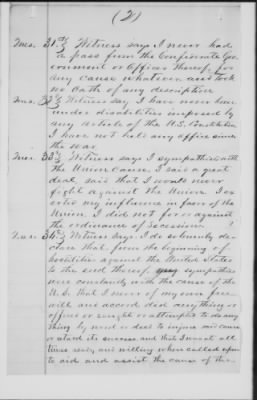 (2)
Ques. 31st } Witness says I never had
a pass from the Confederate Gov
ernment or Officer thereof, for
any cause whatever and took
no Oath of any description
Ques. 32d } Witness say I have never been
under disabilities imposed by
any Article of the U.S. Constitution
I have not held any office since
the war.
Ques. 33d } Witness says I sympathized with
the Union Cause, I said a great
deal, said that I would never
fight against the Union. I ex
erted my influence in favor of the
Union. I did not for or against
the ordinance of Secession.
Ques. 34th } Witness says I do solemnly de
clare that from the beginning of
hostilities against the United States
to the end thereof, my sympathies
were constantly with the cause of the
U.S. that I never of my own free
will and accord did anything or
offer or sought or attempted to do any
thing by word or deed to injure said cause
or retard its success, and that I was at all
times ready and willing when called upon
to aid and assist the cause of the